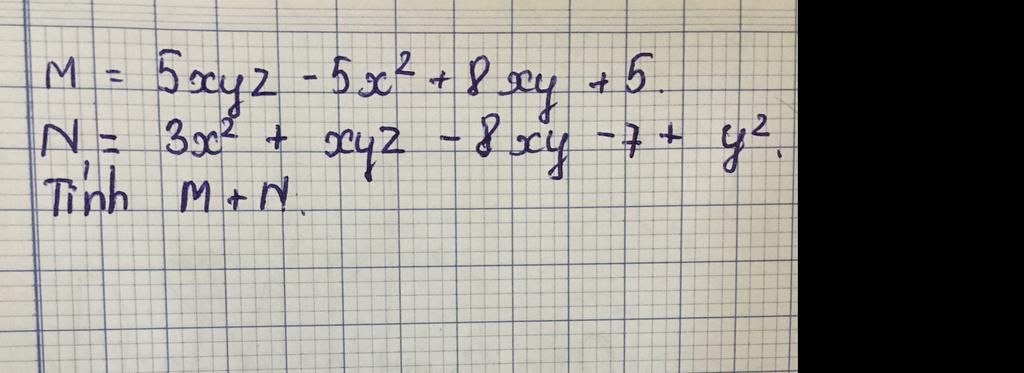 M = 5xyz - 5x² + 8xy + 5.
N = 3x² + xyz - 8xy - 7 + y².
Tính M + N.